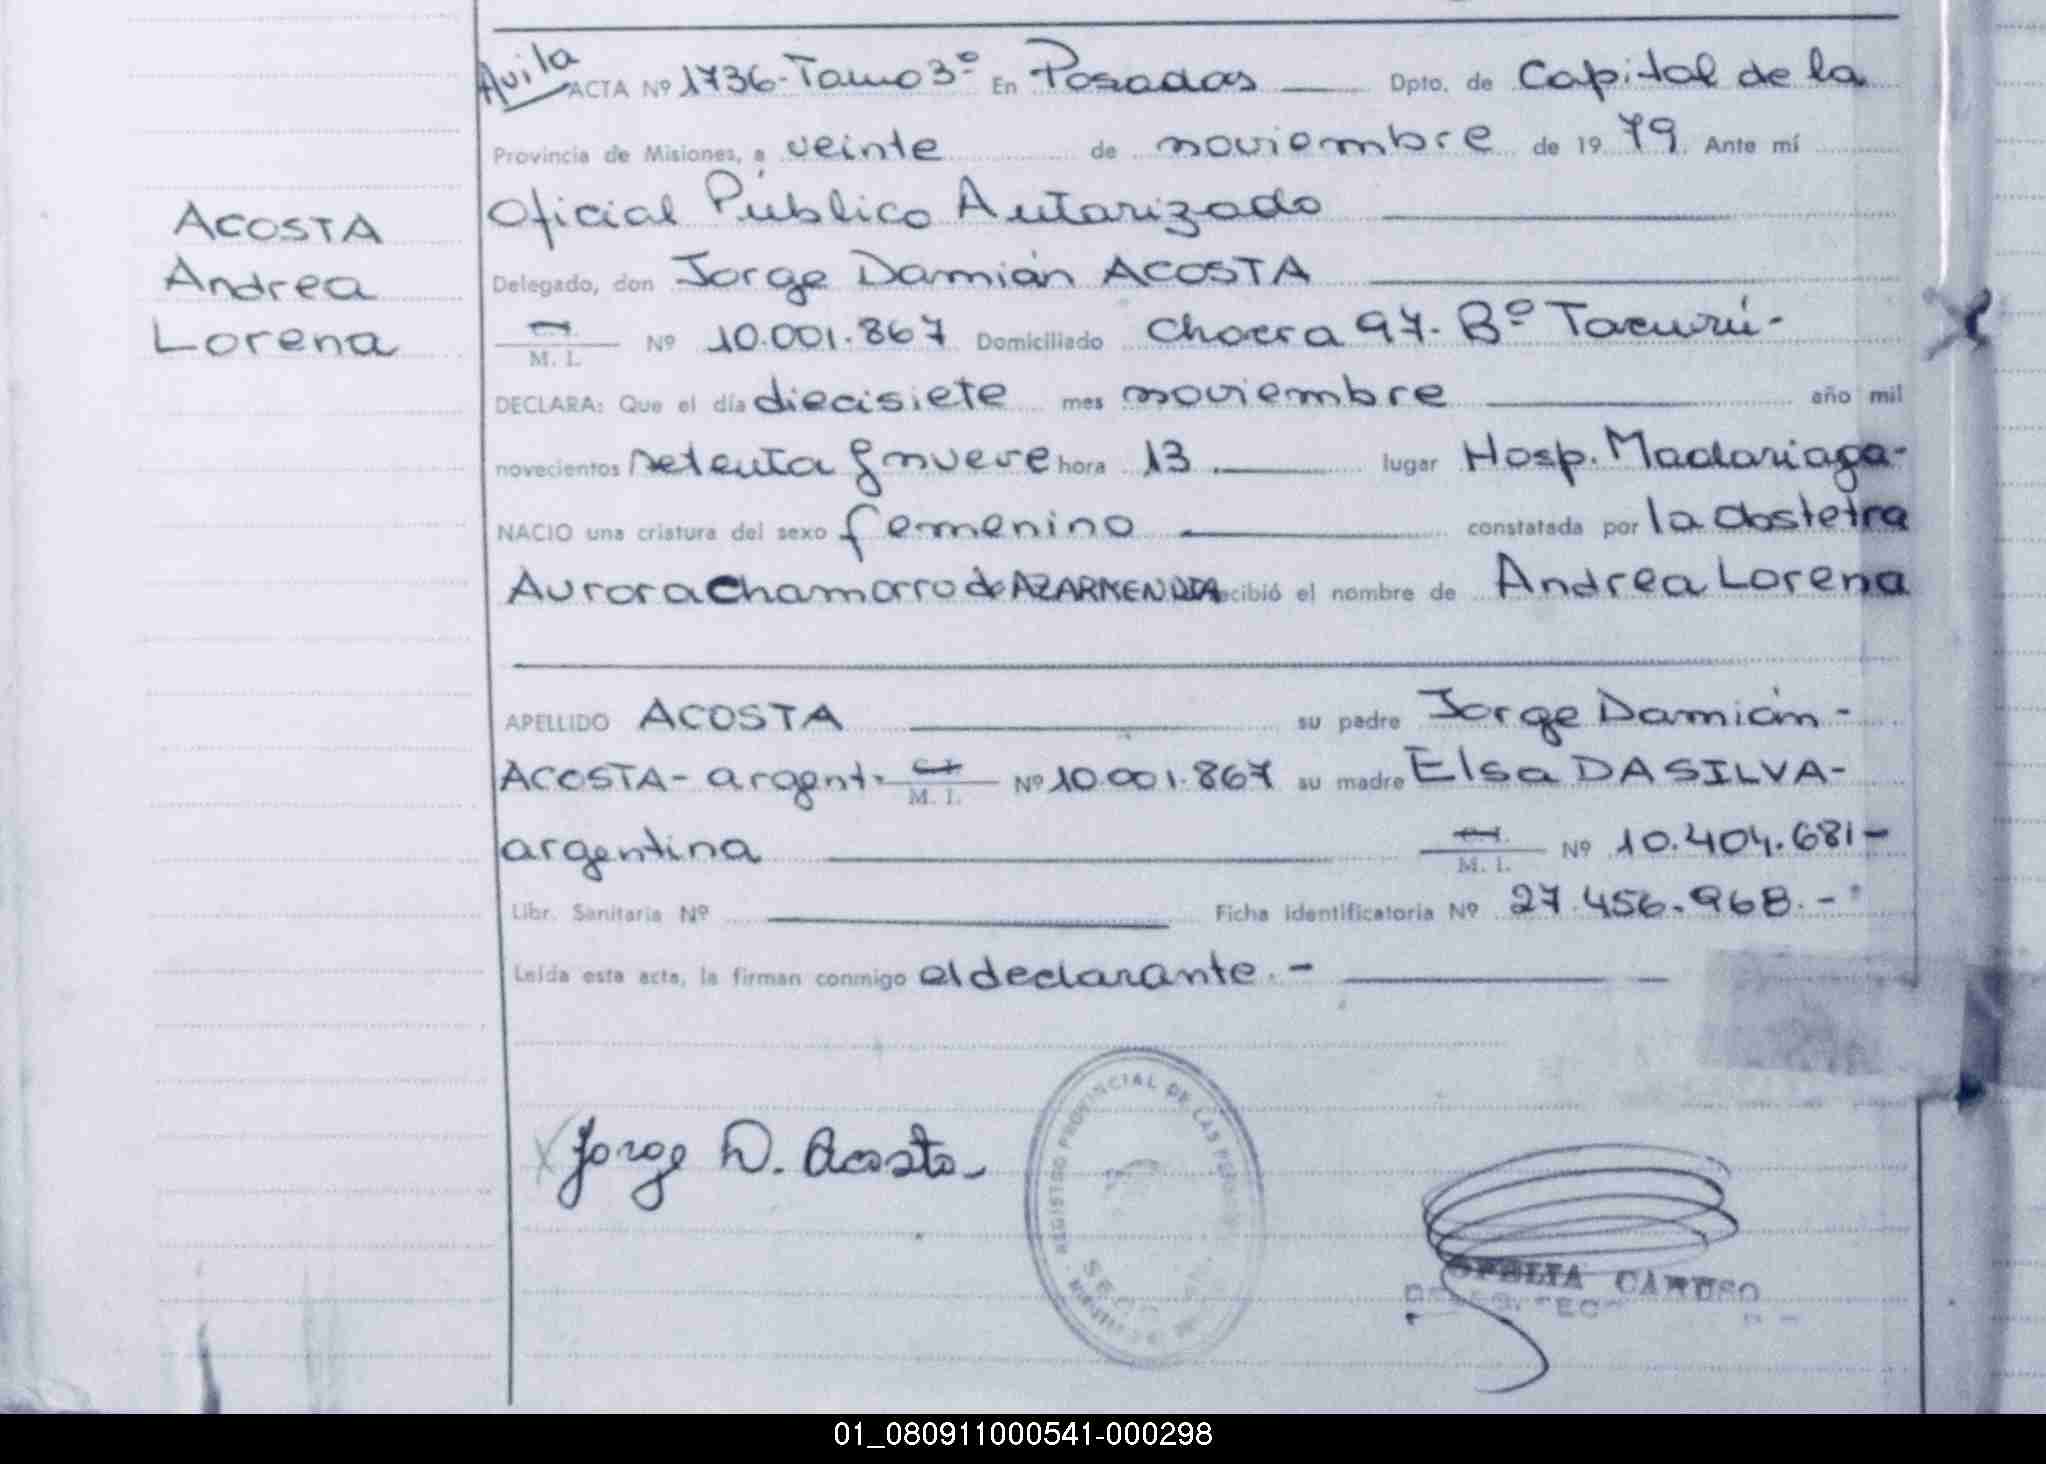 Avila
ACTA Nº 1736-Tomo 3º En Posadas Dpto. de Capital de la
Provincia de Misiones, a veinte de noviembre de 1979. Ante mí
Oficial Público Autorizado
ACOSTA
Andrea
Lorena
Delegado, don Jorge Damián ACOSTA
M. I. Nº 10.001.867 Domiciliado Chacra 97. Bº Tacurú-
DECLARA: Que el día diecisiete mes noviembre año mil
novecientos setenta y nueve hora 13 lugar Hosp. Madariaga-
NACIO una criatura del sexo femenino constatada por la Obstetra
Aurora Chamorro de recibió el nombre de Andrea Lorena
APELLIDO ACOSTA su padre Jorge Damián-
ACOSTA- argent. M. I. Nº 10.001.867 su madre Elsa DA SILVA-
argentina M. I. Nº 10.404.681-
Libr. Sanitaria Nº Ficha identificatoria Nº 27.456.968.-
Leída esta acta, la firman conmigo el declarante.-
Jorge D. Acosta
REGISTRO PROVINCIAL DE LAS
OFELIA CARUSO
01_080911000541-000298